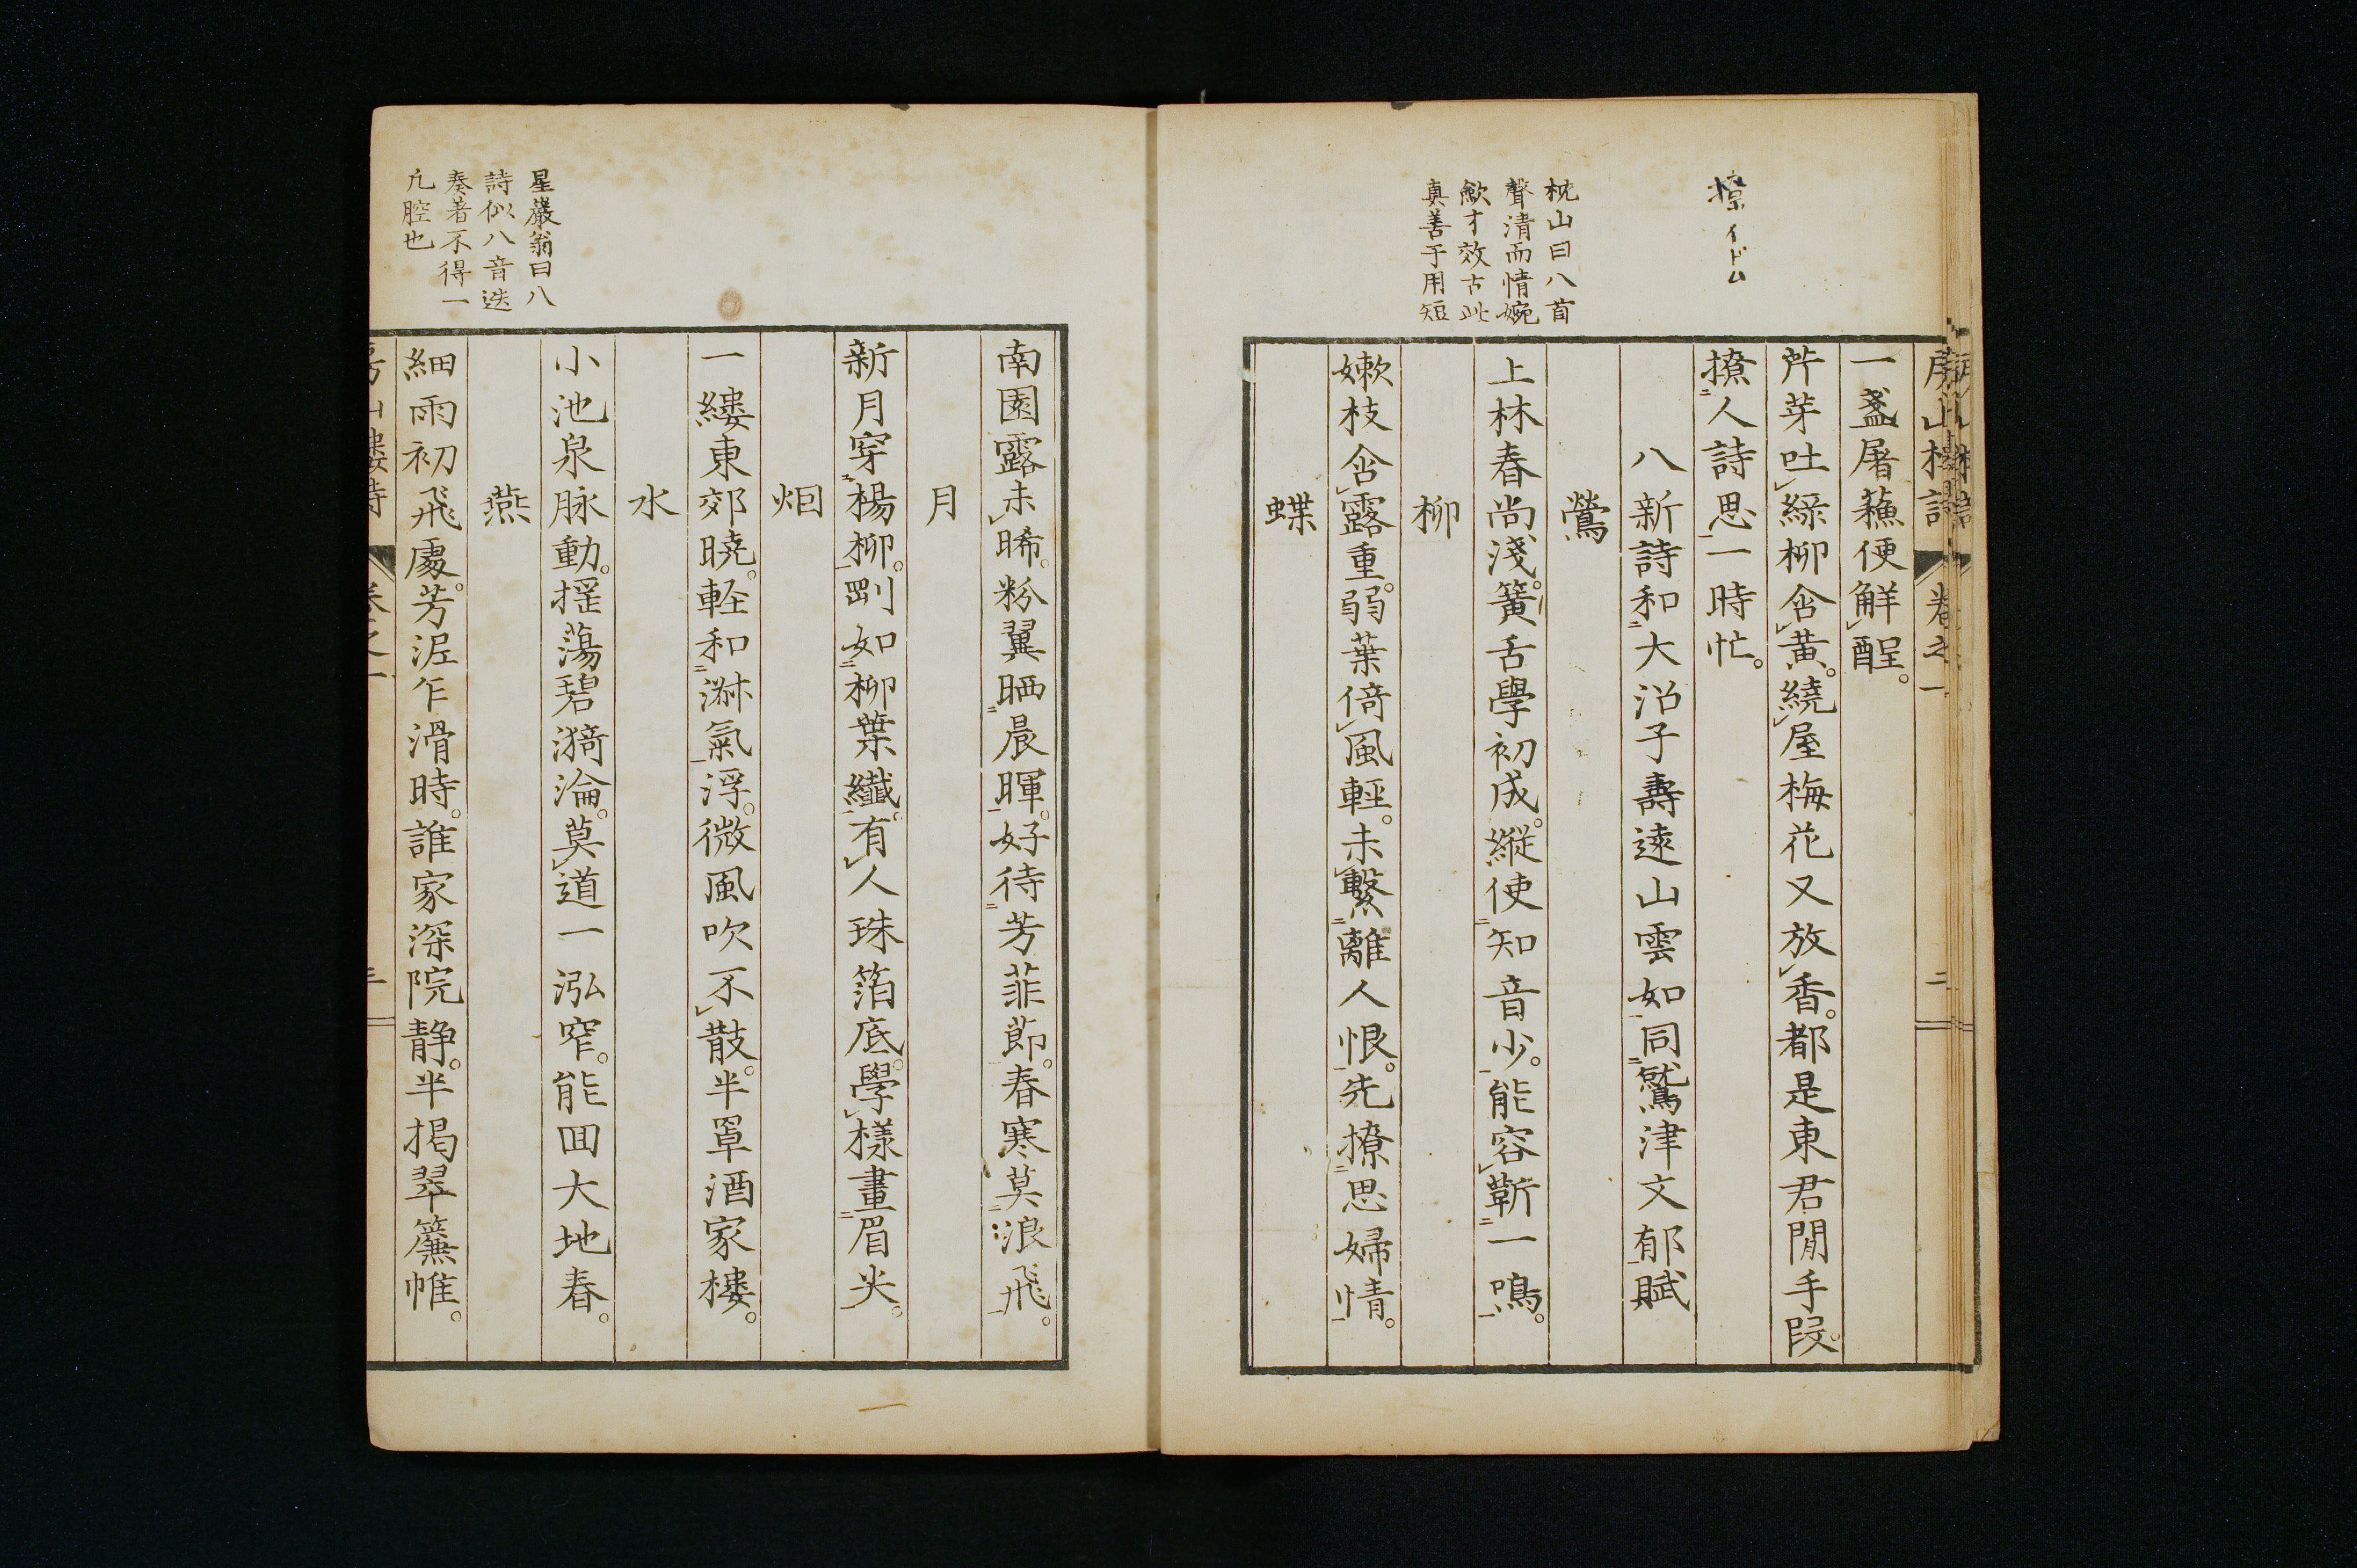 撩イドム
枕山曰八首
聲清而情婉
歉才效古此
真善于用短
一盞屠蘓便解酲。
芹芽吐綠柳含黃。繞屋梅花又放香。都是東君閒手段。
撩人詩思一時忙。
八新詩和大沼子壽遠山雲如同鷲津文郁賦
鶯
上林春尚淺。簧舌學初成。縱使知音少。能容靳一鳴。
柳
嫰枝含露重。弱葉倚風輕。未繫離人恨。先撩思婦情。
蝶
星巖翁曰八
詩似八音迭
奏著不得一
凡腔也
南園露未晞。粉翼晒晨暉。好待芳菲節。春寒莫浪飛。
月
新月穿楊柳。剛如柳葉纖。有人珠箔底。學樣畫眉尖。
烟
一縷東郊曉。軽和淋氣浮。微風吹不散。半罩酒家樓。
水
小池泉脉動。搖蕩碧漪淪。莫道一泓窄。能回大地春。
燕
細雨初飛處。芳泥乍滑時。誰家深院静。半掲翠簾帷。
房山樓詩 卷之一